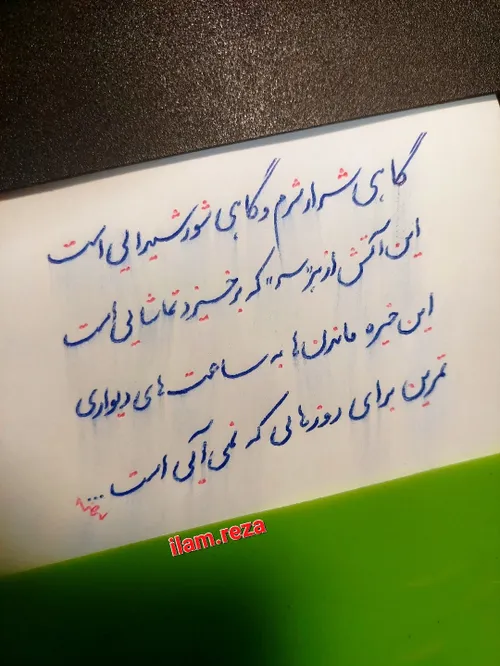 گاهی شرار شرم و گاهی شور شیدایی است
این آتش از هر سو که برخیزد تماشایی است
این خیره ماندن ها به ساعت های دیواری
تمرین برای روزهایی که نمی آیی است ...
ilam.reza